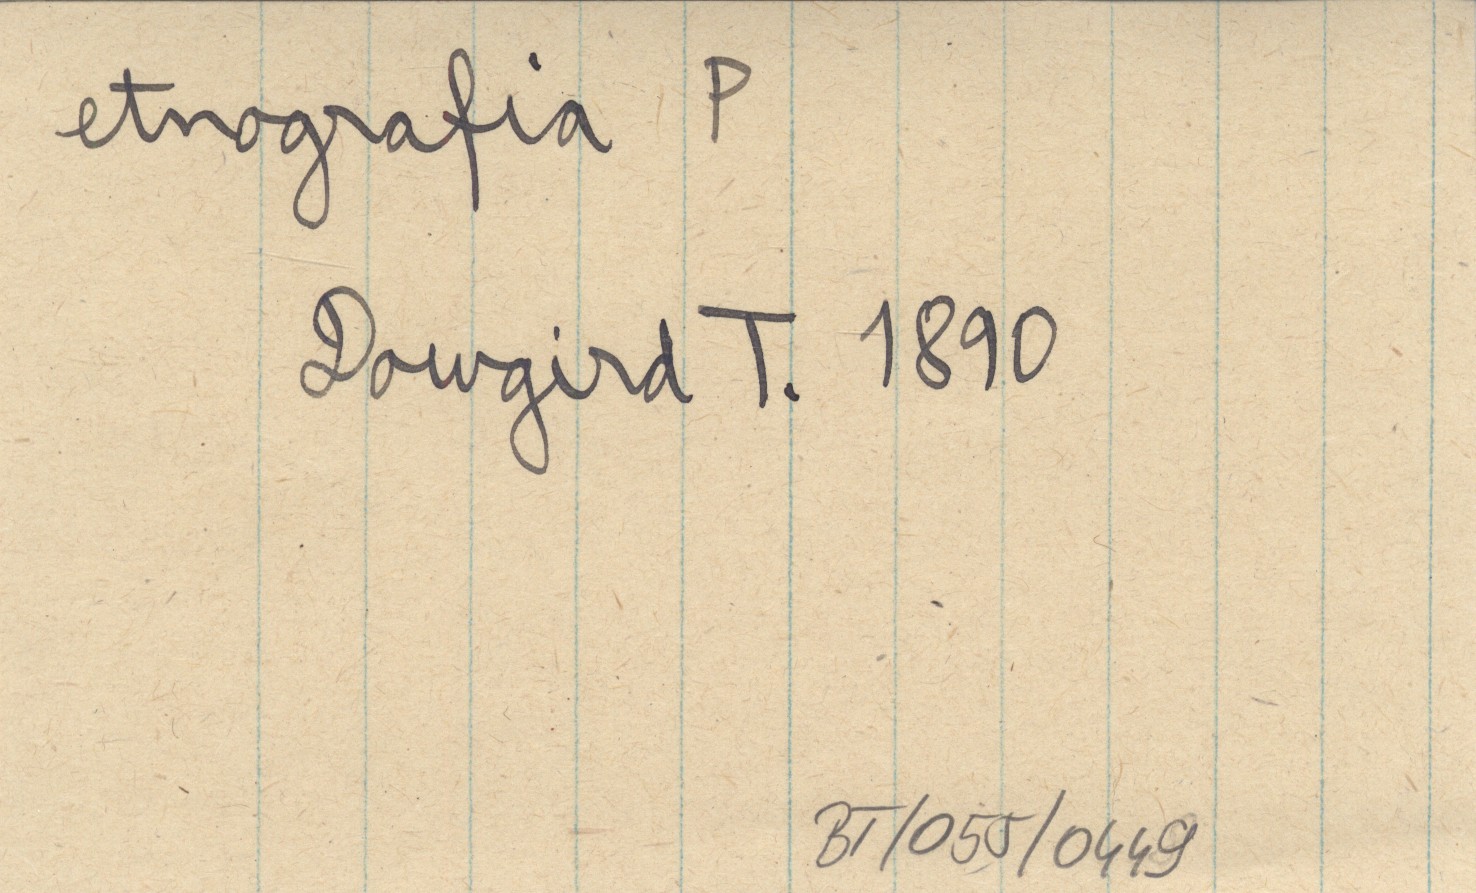 etnografia P
Dowgird T. 1890
BT/055/0449